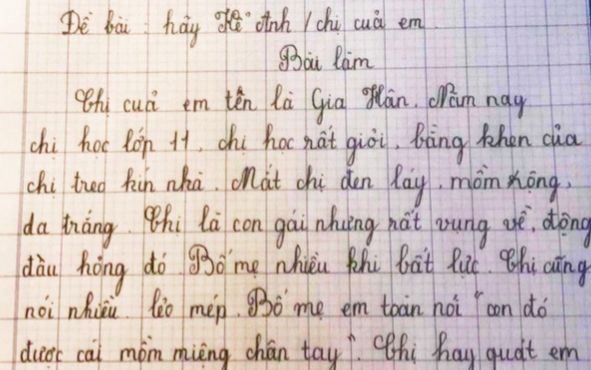 Đề bài : hãy Kể Anh / chị cuả em
Bài làm
Chị cuả em tên là Gia Hân. Năm nay
chị học lớp 11, chị học rất giỏi, bằng khen của
chị treo kín nhà. Mắt chị đen láy, mồm rộng,
da trắng. Chị là con gái nhưng rất vung về, động
đầu hỏng đó. Bố mẹ nhiều khi bất lực. Chị cũng
nói nhiều lẻo mép. Bố mẹ em toàn nói "con đó
được cái mồm miệng chân tay". Chị hay quát em